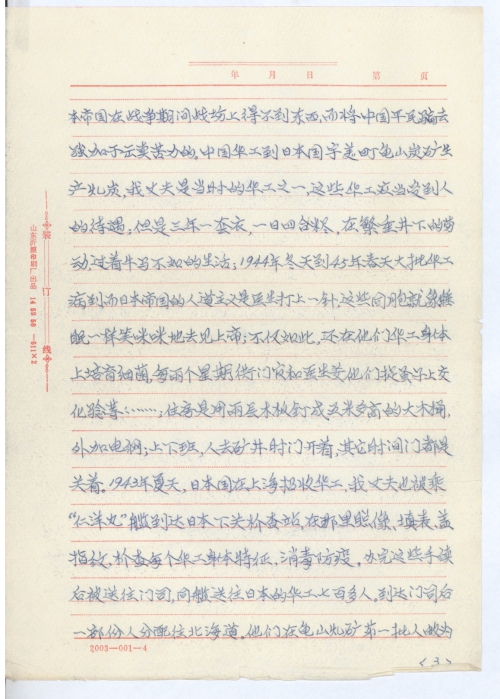 年 月 日 第 页
本帝国在战争期间战场上得不到东西,而将中国平民骗去
强加于示卖苦力的,中国华工到日本国字美町龟山炭矿生
产化炭,我丈夫是当时的华工之一,这些华工应当受到人
的待遇;但是三年一套衣,一日四台粥,在繁重井下的劳
动过着牛马不如的生活;1944年冬天到45年春天大批华工
病到而日本帝国的人道主义是医生打上一针,这些同胞就象睡
眠一样笑咪咪地去见上帝;不仅如此,还在他们华工身体
上培育细菌,每两个星期
他们
上交
化验等……;住房是用两层木板钉成五米多高的大木桶,
外加电网;上下班,人去矿井时门开着,其它时间门都是
关着。1943年夏天,日本国在上海招收华工,我丈夫也被乘
“仁洋丸”船到达日本下关检查站,在那里照像、填表、盖
指纹,检查每个华工身体特征,消毒防疫,办完这些手续
后被送往门司,同船送往日本的华工七百多人,到达门司后
一部份人分配往北海道,他们在龟山炭矿第一批人
为
2003—001—4
<3>
装
订
线
山东沂源印刷厂出品